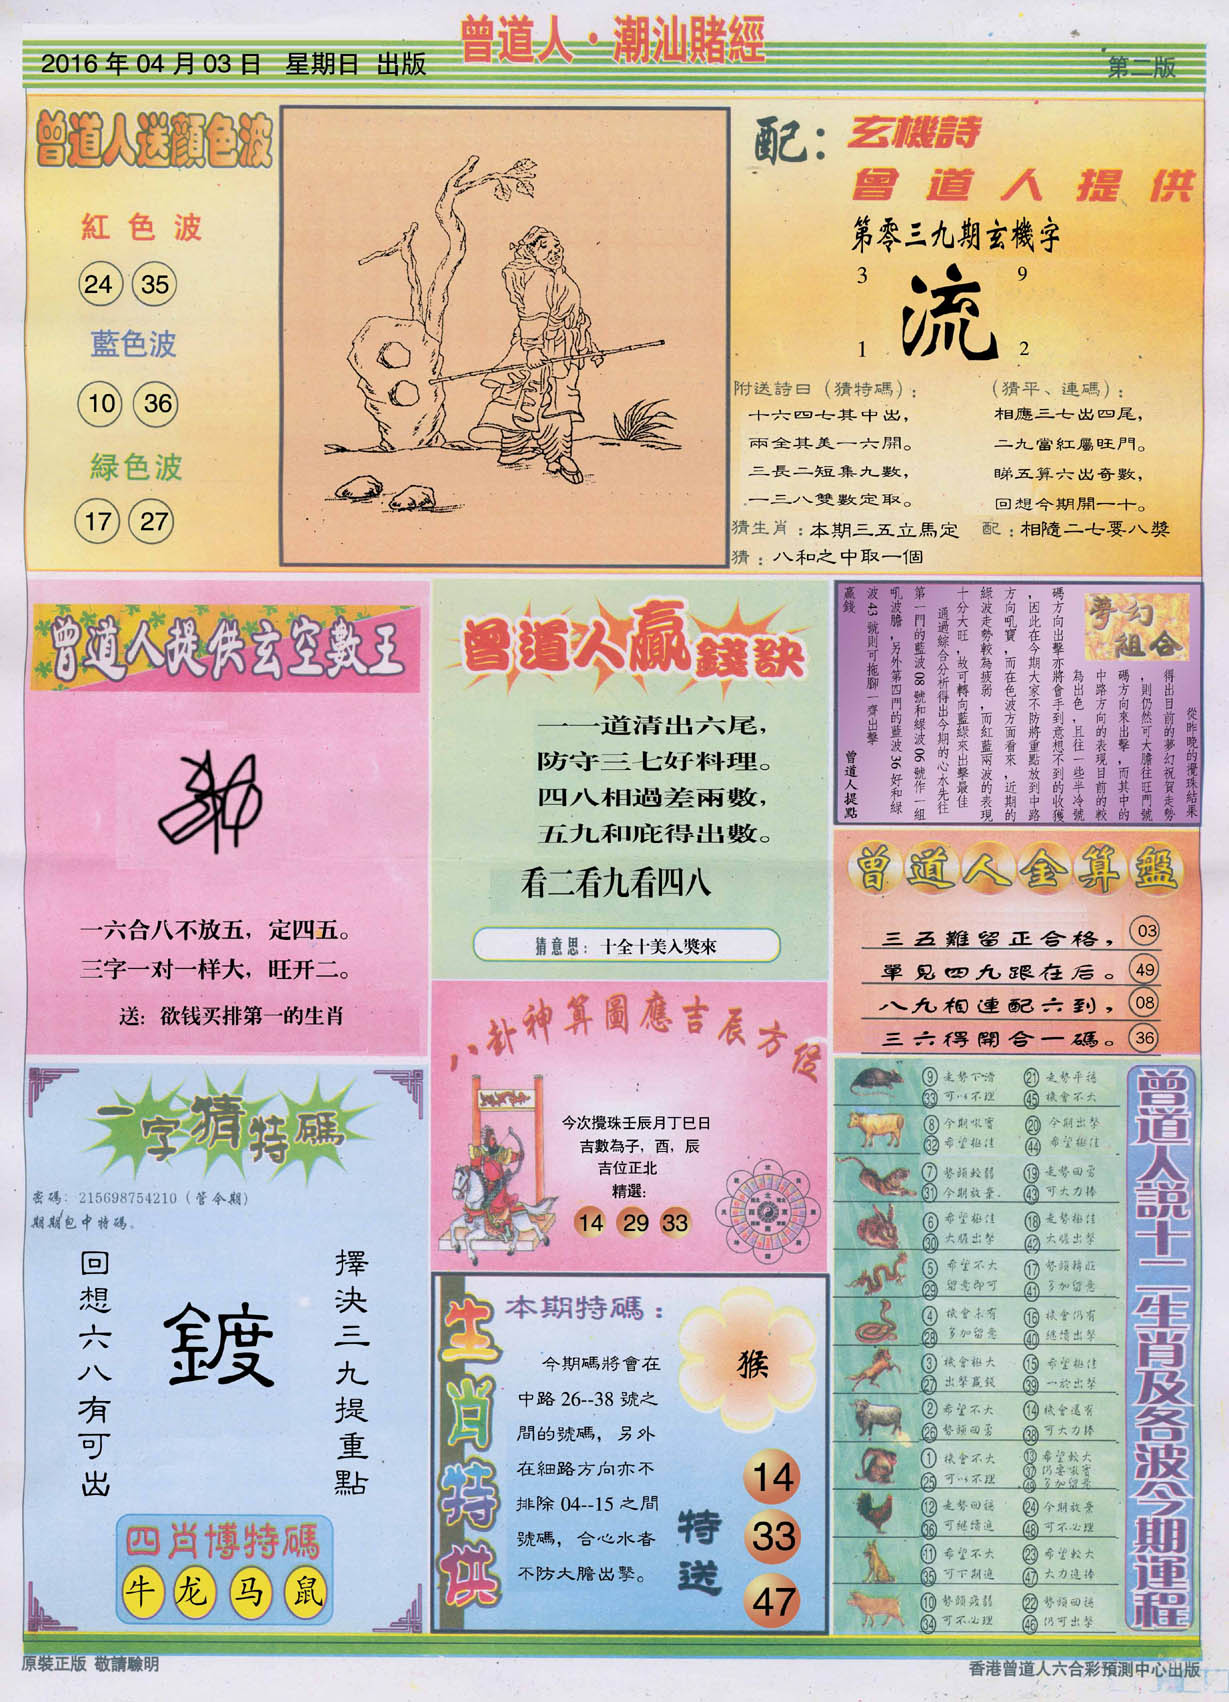 曾道人·潮汕賭經
2016 年 04 月 03 日 星期日 出版
第二版
曾道人送顔色波
紅色波
24 35
藍色波
10 36
緑色波
17 27
配：玄機詩
曾道人提供
第零三九期玄機字
3 9
流
1 2
附送詩曰（猜特碼）：
十六四七其中出，
兩全其美一六開。
三長二短集九數，
一三八雙數定取。
（猜平、連碼）：
相應三七出四尾，
二九當紅屬旺門。
睇五算六出奇數，
回想今期開一十。
猜生肖：本期三五立馬定
配：相隨二七要八獎
猜：八和之中取一個
曾道人提供玄空數王
一六合八不放五，定四五。
三字一对一样大，旺开二。
送：欲钱买排第一的生肖
曾道人贏錢訣
一一道清出六尾，
防守三七好料理。
四八相過差兩數，
五九和庇得出數。
看二看九看四八
猜意思：十全十美入獎來
夢幻組合
從昨晚的攪珠結果
得出目前的夢幻祝賀走勢
，則仍然可大膽往旺門號
碼方向來出擊，而其中的
中路方向的表現目前的較
為出色，且往一些半冷號
碼方向出擊亦將會手到意想不到的收獲
，因此在今期大家不防將重點放到中路
方向吼寶，而在色波方面看來，近期的
綠波走勢較為疲弱，而紅藍兩波的表現
十分大旺，故可轉向藍綠來出擊最佳
通過綜合分析得出今期的心水先往
第一門的藍波 08 號和綠波 06 號作一組
吼波膽，另外第四門的藍波 36 好和綠
波 43 號則可拖腳一齊出擊
贏錢
曾道人提點
曾道人金算盤
三五難留正合格， 03
單見四九跟在后。 49
八九相連配六到， 08
三六得開合一碼。 36
一字猜特碼
密碼：215698754210（管令期）
期期包中特碼。
擇決三九提重點
鍍
回想六八有可出
四肖博特碼
牛 龙 马 鼠
八卦神算圖應吉辰方位
今次攪珠壬辰月丁巳日
吉數為子，酉，辰
吉位正北
精選：
14 29 33
生肖特供
本期特碼：
今期碼將會在
中路 26--38 號之
間的號碼，另外
在細路方向亦不
排除 04--15 之間
號碼，合心水者
不防大膽出擊。
猴
特送
14
33
47
曾道人説十二生肖及各波今期運程
9 走勢下滑 21 走勢平穩
33 可以不理 45 機會不大
8 今期吼寶 20 今期出擊
32 希望極佳 44 希望極佳
7 勢頭較弱 19 走勢回勇
31 今期放棄 43 可大力捧
6 希望極佳 18 走勢極佳
30 大膽出擊 42 大膽出擊
5 希望不大 17 勢頭轉旺
29 留意即可 41 多加留意
4 機會未有 16 機會仍有
28 多加留意 40 繼續出擊
3 機會極大 15 希望極佳
27 出擊贏錢 39 一於出擊
2 希望不大 14 機會還有
26 勢頭回勇 38 可大力捧
1 機會不大 13 希望較大
25 可以不理 37 仍要吼寶
49 多加留意
12 走勢回穩 24 今期放棄
36 可繼續追 48 可不必理
11 希望不大 23 希望較大
35 可下期追 47 大力追捧
10 勢頭疲弱 22 勢頭回穩
34 可不必理 46 仍可出擊
原裝正版 敬請驗明
香港曾道人六合彩預測中心出版